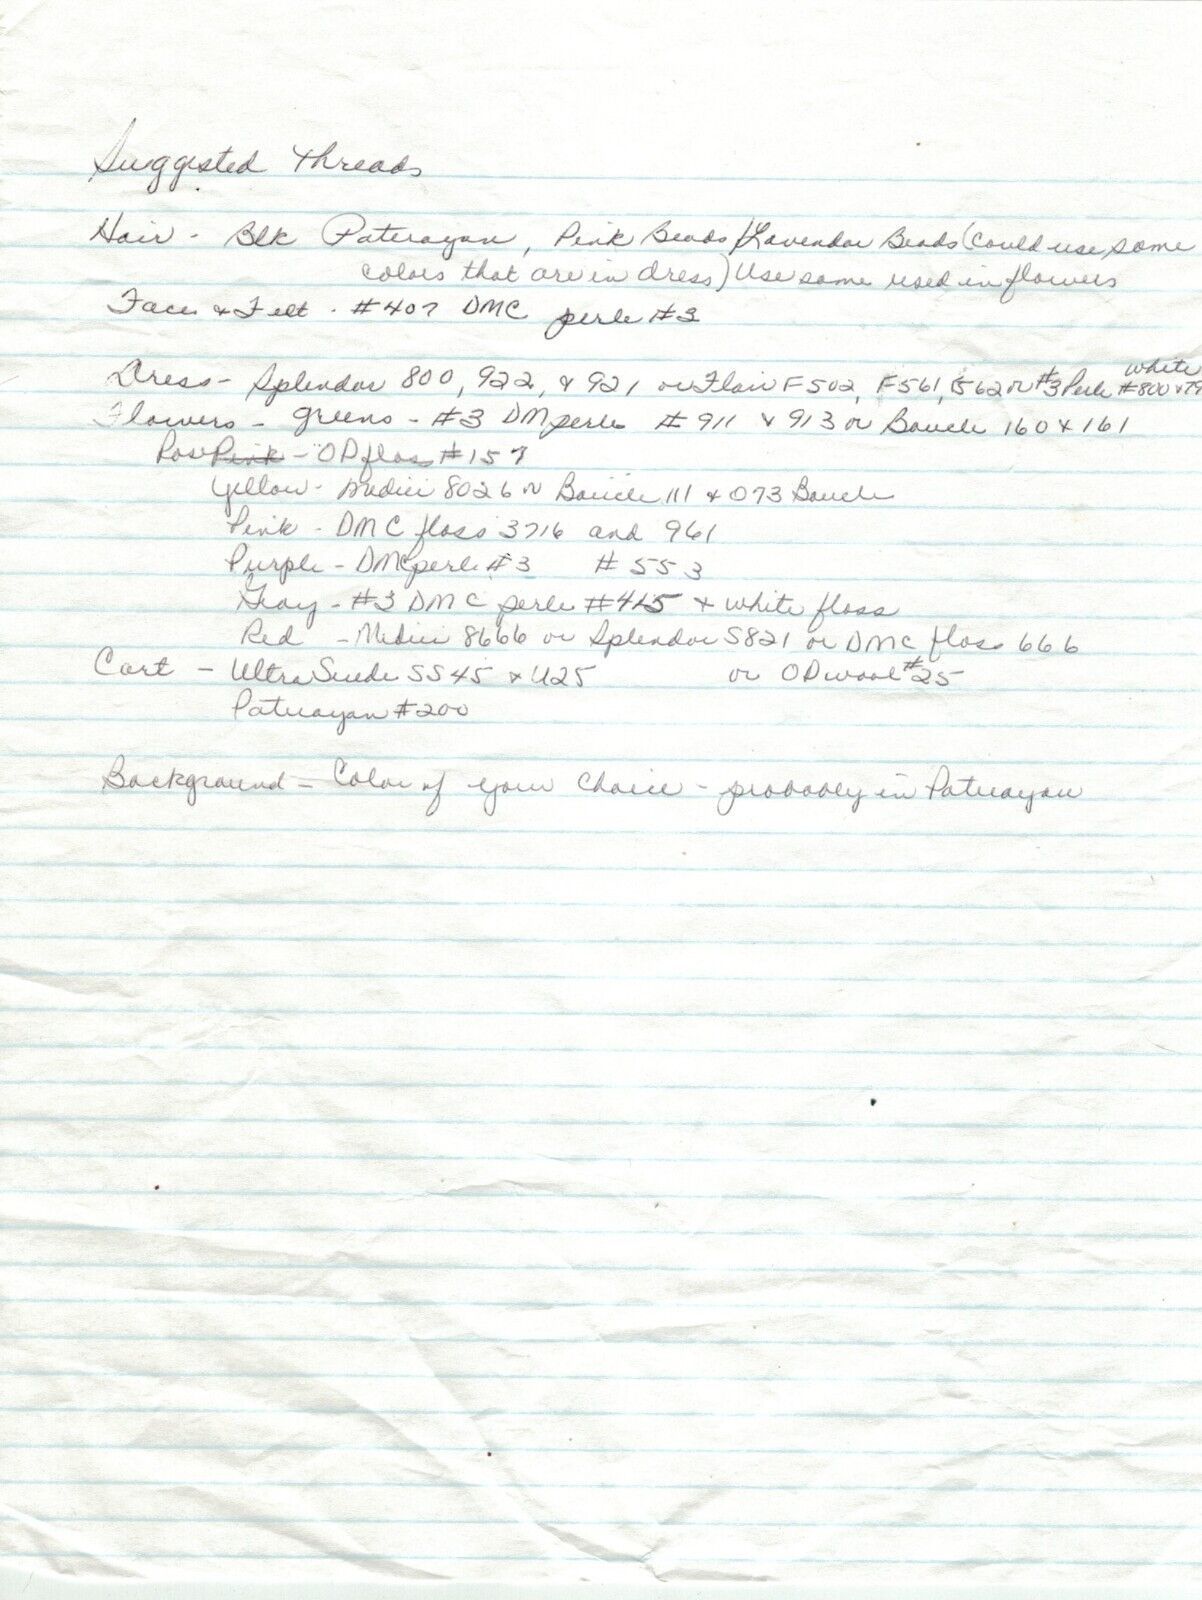 Suggested Threads
Hair - Blk Paterayan, Pink Beads/Lavendar Beads (Could use some
colors that are in dress) Use same used in flowers
Face & Felt - #407 DMC perle #3
white
Dress - Splendor 800, 922, & 921 or Flair F502, F561, F562 or #3 Perle #800 &
Flowers - greens - #3 DM perle #911 & 913 or Boucle 160 & 161
Rose Pink - OD floss #157
Yellow - Medici 8026 or Boucle 111 & 073 Boucle
Pink - DMC floss 3716 and 961
Purple - DMC perle #3 #553
Gray - #3 DMC perle #415 & white floss
Red - Medici 8666 or Splendor S821 or DMC floss 666
Cart - Ultra Suede SS45 & U25 or OD wool #25
Paterayan #200
Background - Color of your choice - probably in Paterayan